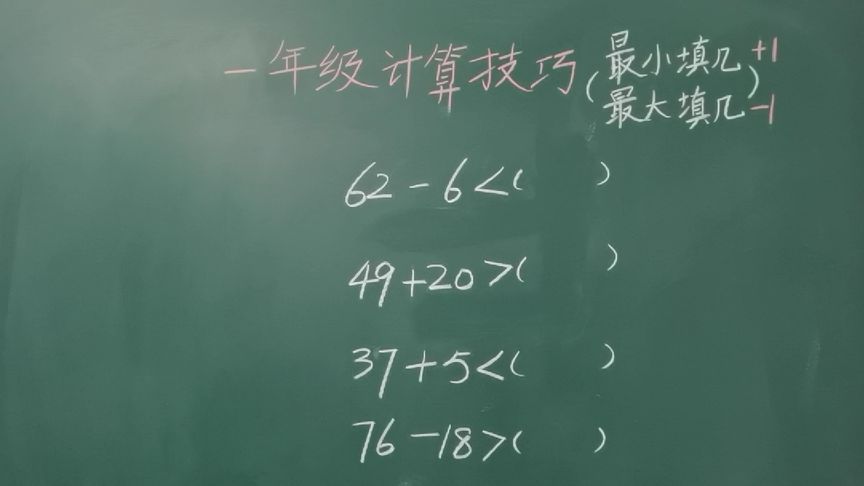 一年级计算技巧(最小填几+1
最大填几-1)
62-6<( )
49+20>( )
37+5<( )
76-18>( )